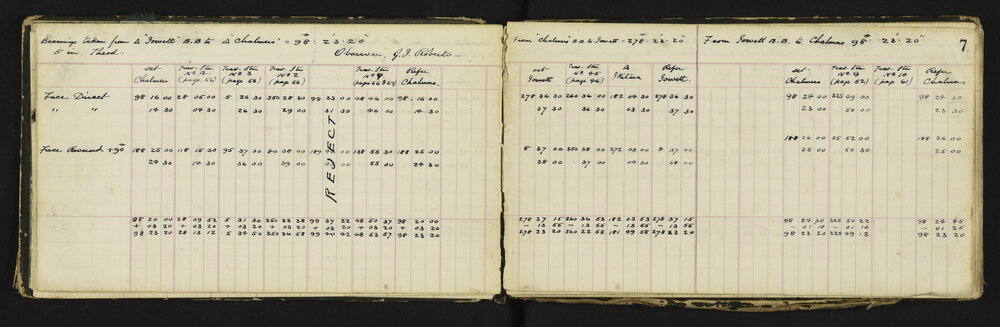 Bearings taken from Δ "Jowett" B.B. to Δ "Chalmers" = 98° 23' 20"
5 in Theod. Observer G.J. Roberts
Set Chalmers Trav. Stn No 4 (page 54) Trav. Stn No 3 (page 53) Trav. Stn No 2 (page 53) Trav. Stn Refer Chalmers.
Face Direct 98 16 00 28 05 00 5 26 30 350 28 30 99 33 00 48 46 00 98 16 00
" " 14 30 04 30 26 30 29 00 31 30 46 00 14 30
REJECT
Face Reversed +90° 188 25 00 118 15 30 95 37 30 80 38 00 189 138 55 30 188 25 00
24 30 14 30 36 00 39 00 55 00 24 30
98 20 00 28 09 52 5 31 30 350 33 38 99 37 22 48 50 37 98 20 00
+ 03 20 + 03 20 + 03 20 + 03 20 + 03 20 + 03 20 + 03 20
98 23 20 28 13 12 5 34 50 350 36 58 99 40 42 48 53 57 98 23 20
From "Chalmers" B.B. to Jowett = 278° 23' 20"
Set Jowett Trav. Stn No 45 (page 46) Δ Refer Jowett.
278 36 30 260 36 00 182 04 30 278 36 30
37 30 36 30 03 00 37 30
8 37 00 350 38 00 272 03 00 8 37 00
38 00 37 00 04 30 38 00
278 37 15 260 36 53 182 03 53 278 37 15
- 13 55 - 13 55 - 13 55 - 13 55
278 23 20 260 22 58 181 49 58 278 23 20
From Jowett B.B. to Chalmers 98° 23' 20"
7
Set Chalmers Trav. Stn No 9 (page 52) Trav. Stn No 10 (page 61) Refer Chalmers.
98 24 00 325 49 00 98 24 30
23 00 50 00 23 30
188 26 00 55 52 00 188 26 00
25 00 50 30 25 00
98 24 30 325 50 22 98 24 45
- 01 10 - 01 10 - 01 25
98 23 20 325 49 12 98 23 20